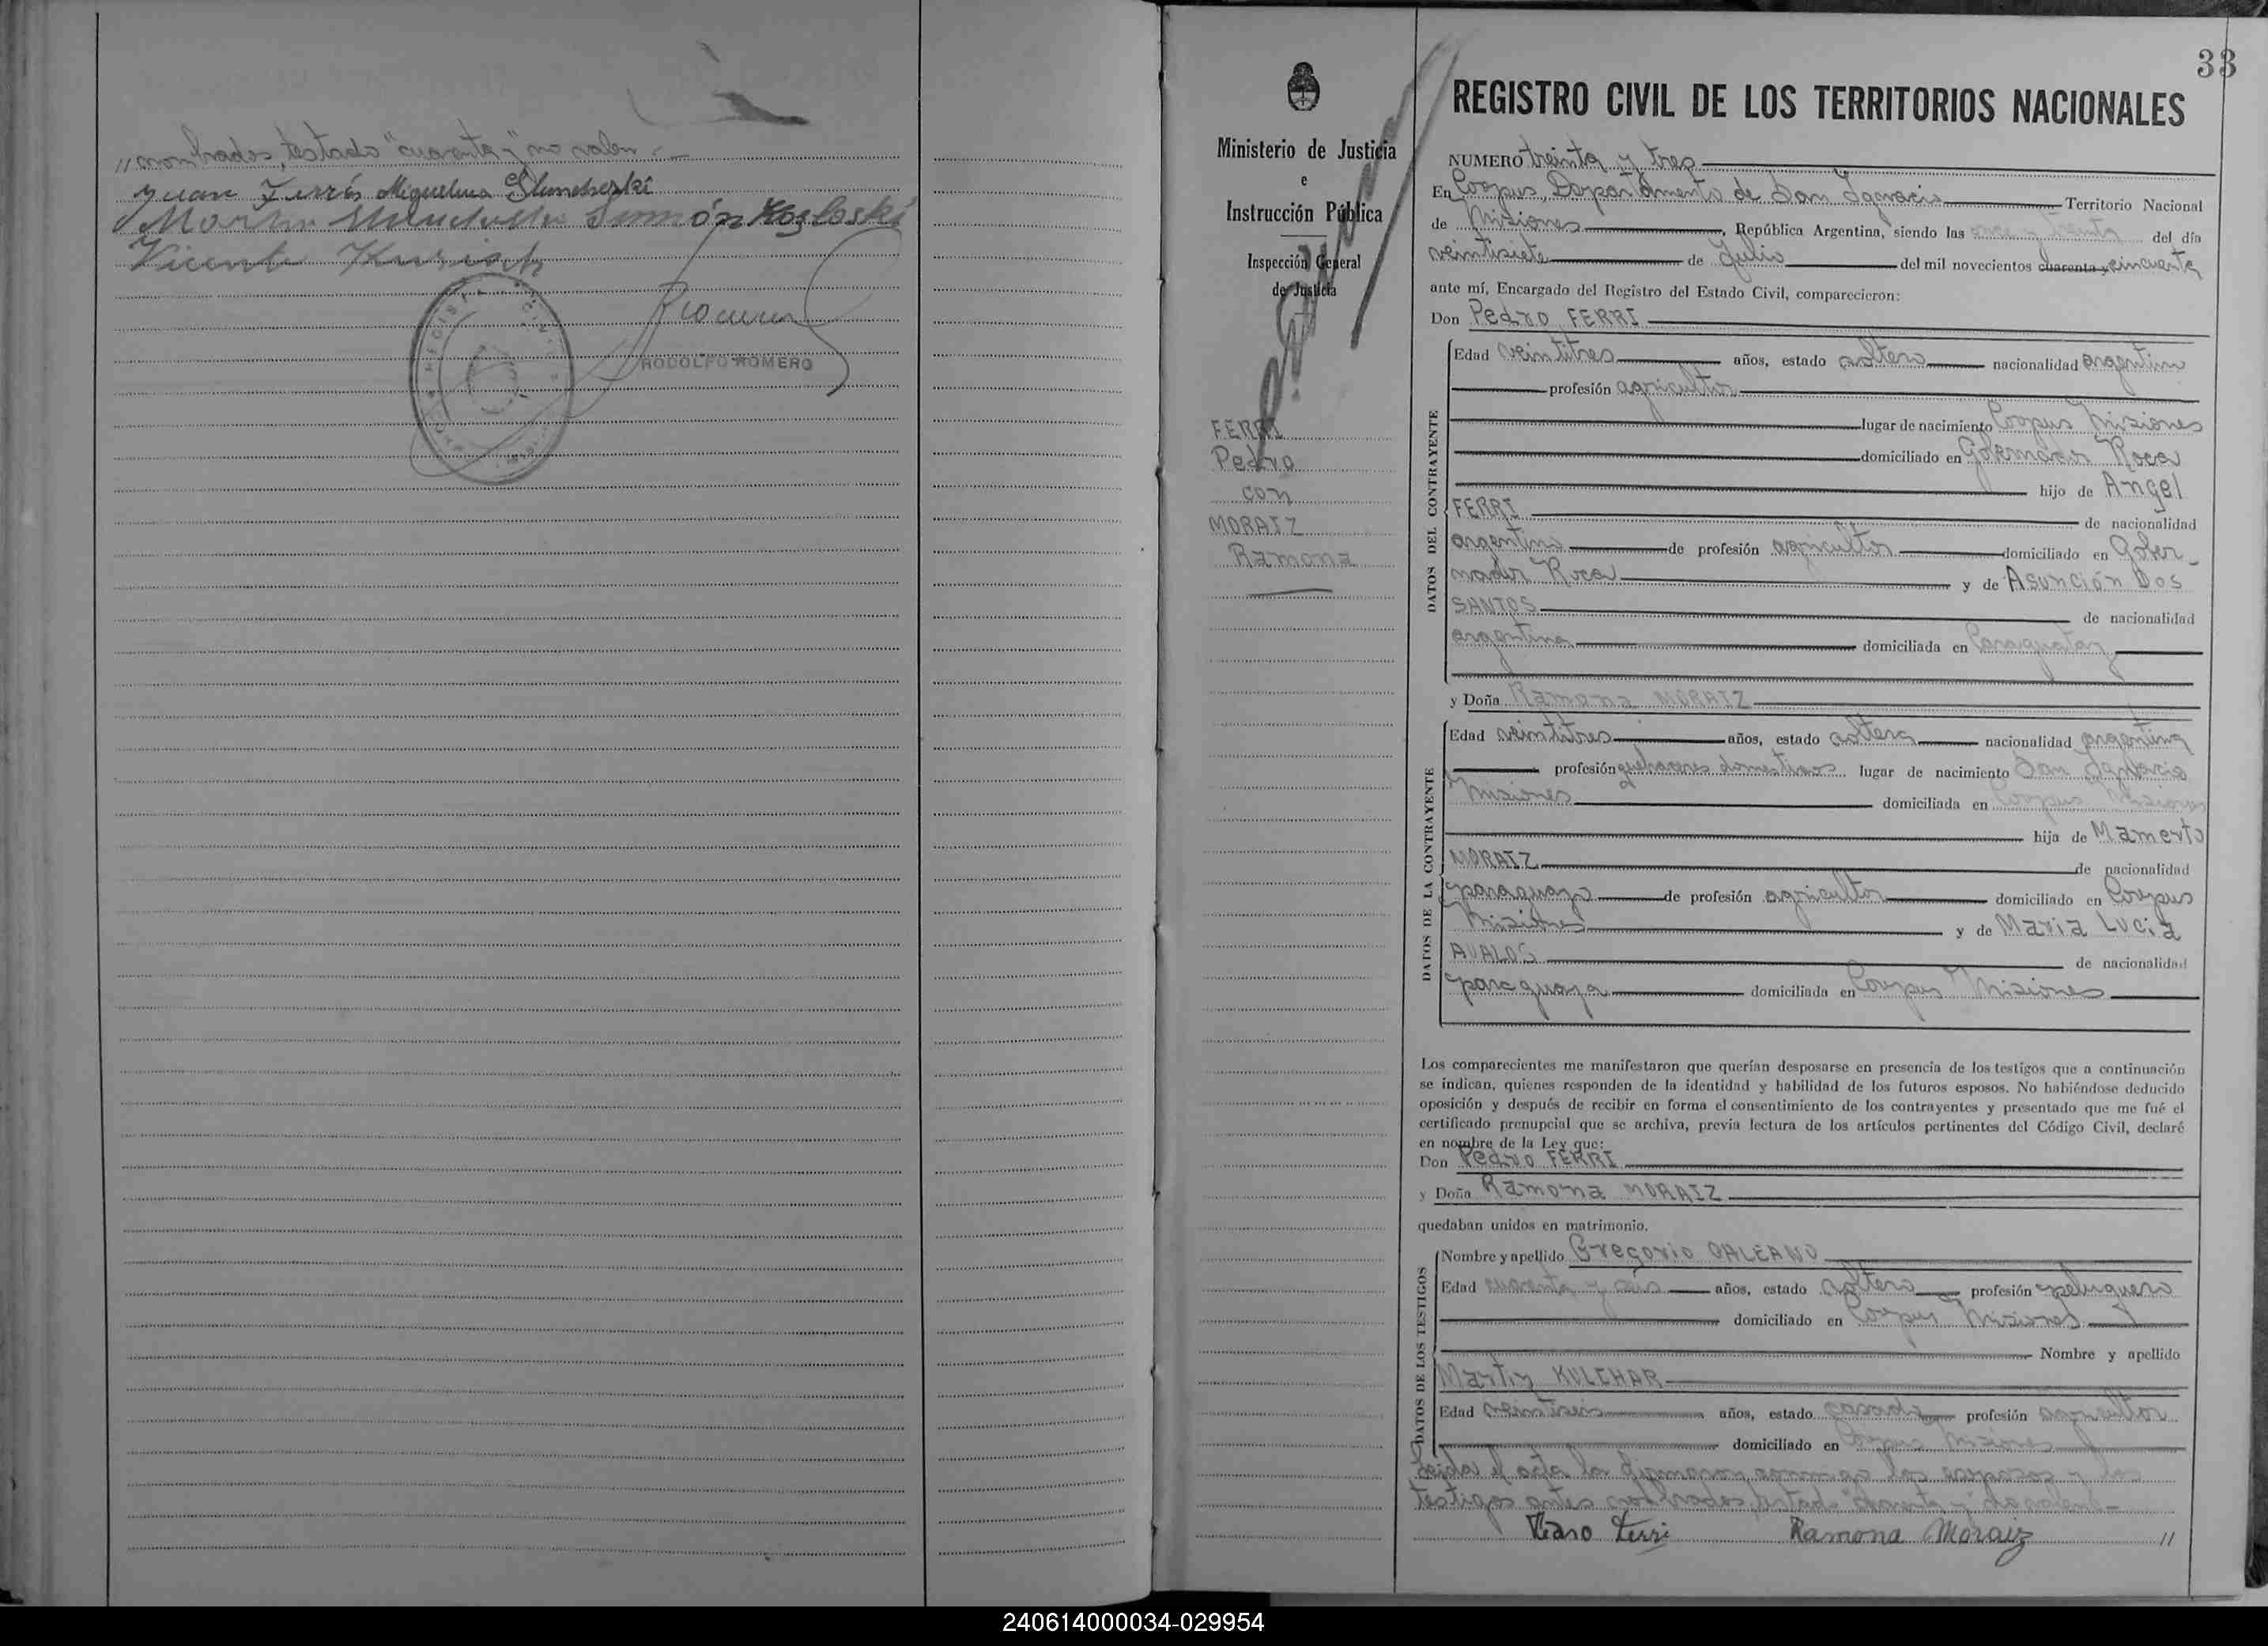 "nombrados, testado "cuarenta y" no valen.—
Juan Ferrés Miguelina
Simón Kozloski
Vicente
RODOLFO ROMERO
33
Ministerio de Justicia
e
Instrucción Pública
Inspección General
de Justicia
FERRI
Pedro
con
MORAIZ
Ramona
REGISTRO CIVIL DE LOS TERRITORIOS NACIONALES
NUMERO treinta y tres
En Corpus, Departamento de San Ignacio Territorio Nacional
de Misiones, República Argentina, siendo las once y treinta del día
veintisiete de Julio del mil novecientos cuarenta y cincuenta
ante mí, Encargado del Registro del Estado Civil, comparecieron:
Don Pedro FERRI
DATOS DEL CONTRAYENTE
Edad veintitres años, estado soltero nacionalidad argentino
profesión agricultor
lugar de nacimiento Corpus Misiones
domiciliado en Gobernador Roca
hijo de Angel
FERRI de nacionalidad
argentino de profesión agricultor domiciliado en Gober-
nador Roca y de Asunción Dos
SANTOS de nacionalidad
argentina domiciliada en
y Doña Ramona MORAIZ
DATOS DE LA CONTRAYENTE
Edad veintitres años, estado soltera nacionalidad argentina
profesión quehaceres domesticos lugar de nacimiento San Ignacio
Misiones domiciliada en Corpus Misiones
hija de Mamerto
MORAIZ de nacionalidad
paraguayo de profesión agricultor domiciliado en Corpus
Misiones y de Maria Lucia
AVALOS de nacionalidad
paraguaya domiciliada en Corpus Misiones
Los comparecientes me manifestaron que querían desposarse en presencia de los testigos que a continuación
se indican, quienes responden de la identidad y habilidad de los futuros esposos. No habiéndose deducido
oposición y después de recibir en forma el consentimiento de los contrayentes y presentado que me fué el
certificado prenupcial que se archiva, previa lectura de los artículos pertinentes del Código Civil, declaré
en nombre de la Ley que:
Don Pedro FERRI
y Doña Ramona MORAIZ
quedaban unidos en matrimonio.
DATOS DE LOS TESTIGOS
Nombre y apellido Gregorio GALEANO
Edad cuarenta y seis años, estado soltero profesión peluquero
domiciliado en Corpus Misiones
Nombre y apellido
Martin KULCHAR
Edad veintiseis años, estado casado profesión agricultor
domiciliado en Corpus Misiones
Leida el acta la firmaron conmigo los esposos y los
testigos antes nombrados, testado "cuarenta y" no valen.—
Pedro Ferri Ramona Moraiz //
240614000034-029954